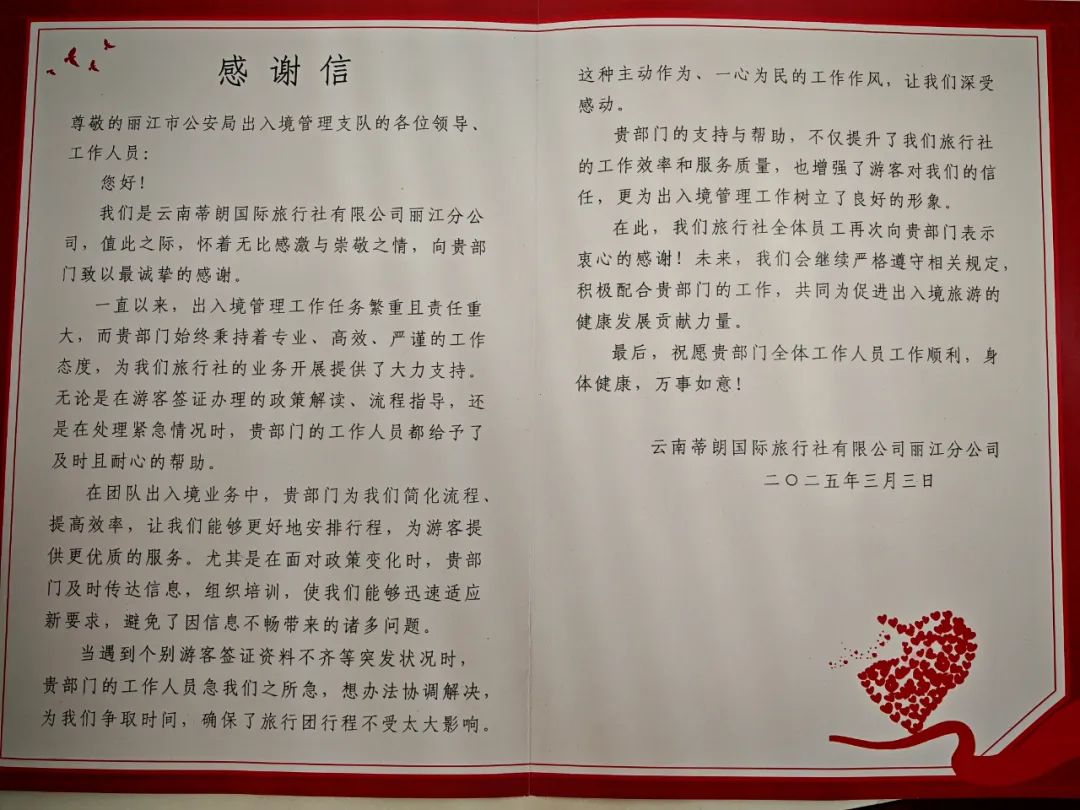 感谢信
尊敬的丽江市公安局出入境管理支队的各位领导、
工作人员：
您好！
我们是云南蒂朗国际旅行社有限公司丽江分公
司，值此之际，怀着无比感激与崇敬之情，向贵部
门致以最诚挚的感谢。
一直以来，出入境管理工作任务繁重且责任重
大，而贵部门始终秉持着专业、高效、严谨的工作
态度，为我们旅行社的业务开展提供了大力支持。
无论是在游客签证办理的政策解读、流程指导，还
是在处理紧急情况时，贵部门的工作人员都给予了
及时且耐心的帮助。
在团队出入境业务中，贵部门为我们简化流程、
提高效率，让我们能够更好地安排行程，为游客提
供更优质的服务。尤其是在面对政策变化时，贵部
门及时传达信息，组织培训，使我们能够迅速适应
新要求，避免了因信息不畅带来的诸多问题。
当遇到个别游客签证资料不齐等突发状况时，
贵部门的工作人员急我们之所急，想办法协调解决，
为我们争取时间，确保了旅行团行程不受太大影响。
这种主动作为、一心为民的工作作风，让我们深受
感动。
贵部门的支持与帮助，不仅提升了我们旅行社
的工作效率和服务质量，也增强了游客对我们的信
任，更为出入境管理工作树立了良好的形象。
在此，我们旅行社全体员工再次向贵部门表示
衷心的感谢！未来，我们会继续严格遵守相关规定，
积极配合贵部门的工作，共同为促进出入境旅游的
健康发展贡献力量。
最后，祝愿贵部门全体工作人员工作顺利，身
体健康，万事如意！
云南蒂朗国际旅行社有限公司丽江分公司
二〇二五年三月三日